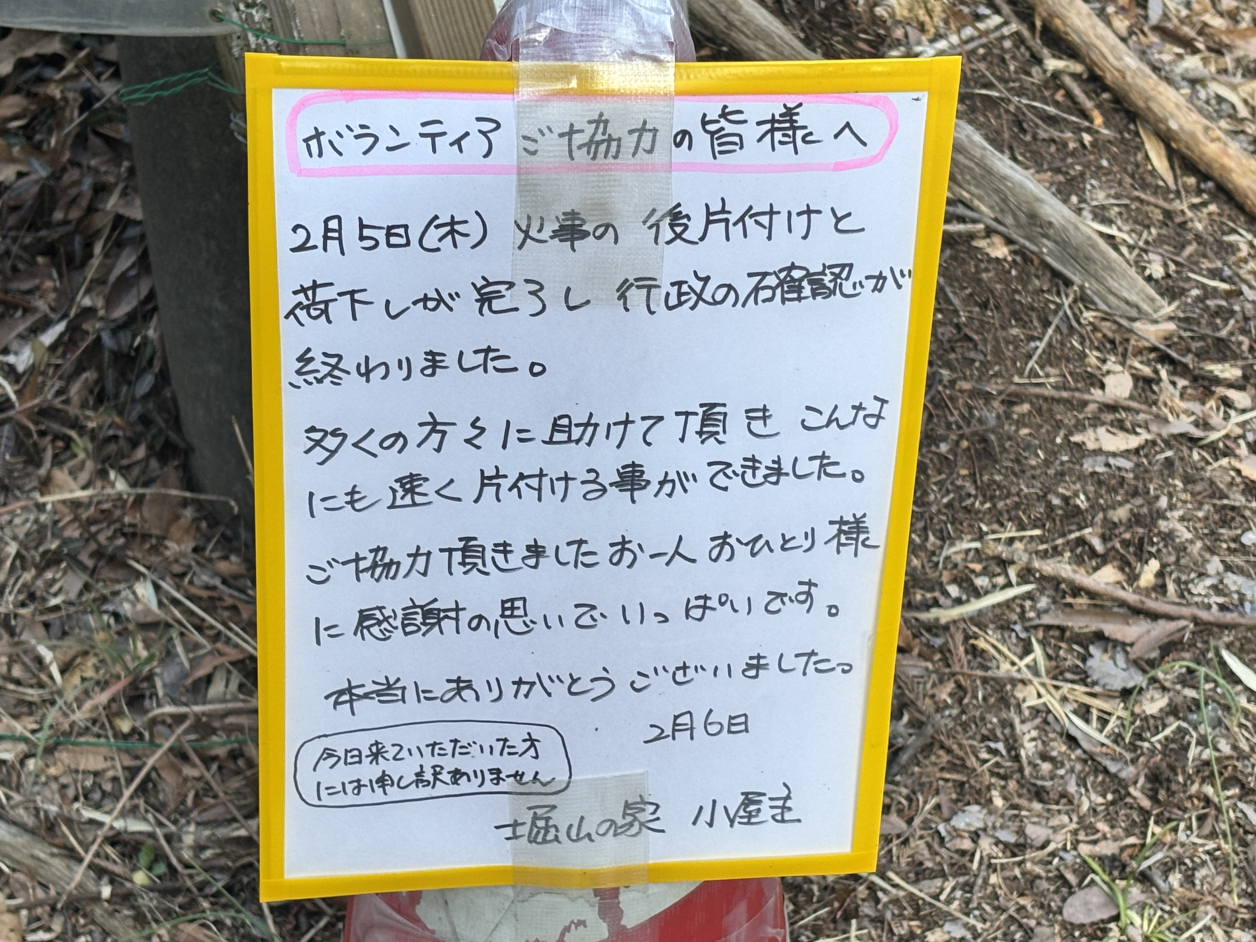 ボランティア ご協力の皆様へ
2月5日(木) 火事の 後片付けと
荷下しが完了し 行政の確認が
終わりました。
多くの方々に助けて頂き こんな
にも速く片付ける事ができました。
ご協力頂きましたお一人おひとり様
に感謝の思いでいっぱいです。
本当にありがとうございました。
2月6日
今日来ていただいた方
には申し訳ありません
堀山の家 小屋主